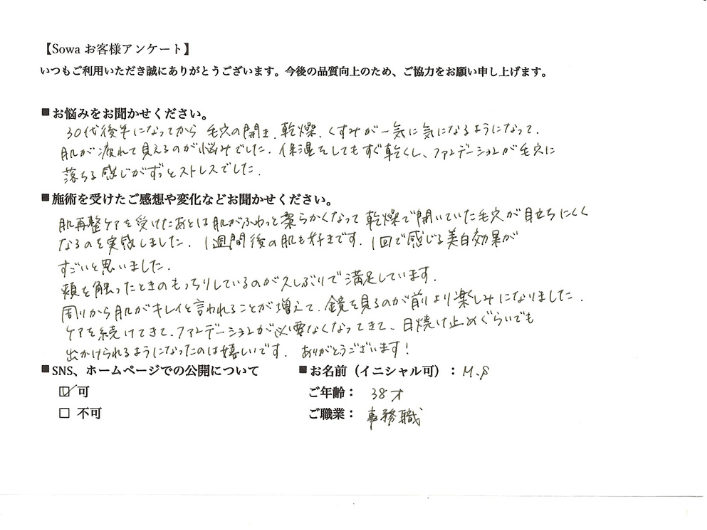 【Sowa お客様アンケート】
いつもご利用いただき誠にありがとうございます。今後の品質向上のため、ご協力をお願い申し上げます。
■お悩みをお聞かせください。
30代後半になってから 毛穴の開き、乾燥、くすみが一気に気になるようになって、
肌が疲れて見えるのが悩みでした。保湿をしてもすぐ乾くし、ファンデーションが毛穴に
落ちる感じがずっとストレスでした。
■施術を受けたご感想や変化などお聞かせください。
肌再整ケアを受けたあとは肌がふわっと柔らかくなって 乾燥で開いていた毛穴が目立ちにくく
なるのを実感しました。1週間後の肌も好きです。1回で感じる美白効果が
すごいと思いました。
頬を触ったときのもっちりしているのが久しぶりで満足しています。
周りから肌がキレイと言われることが増えて、鏡を見るのが前より楽しみになりました。
ケアを続けてきて、ファンデーションが必要なくなってきて、日焼け止めぐらいでも
出かけられるようになったのは嬉しいです。ありがとうございます!
■SNS、ホームページでの公開について
☑ 可
☐ 不可
■お名前（イニシャル可）：M.S
ご年齢： 38才
ご職業： 事務職